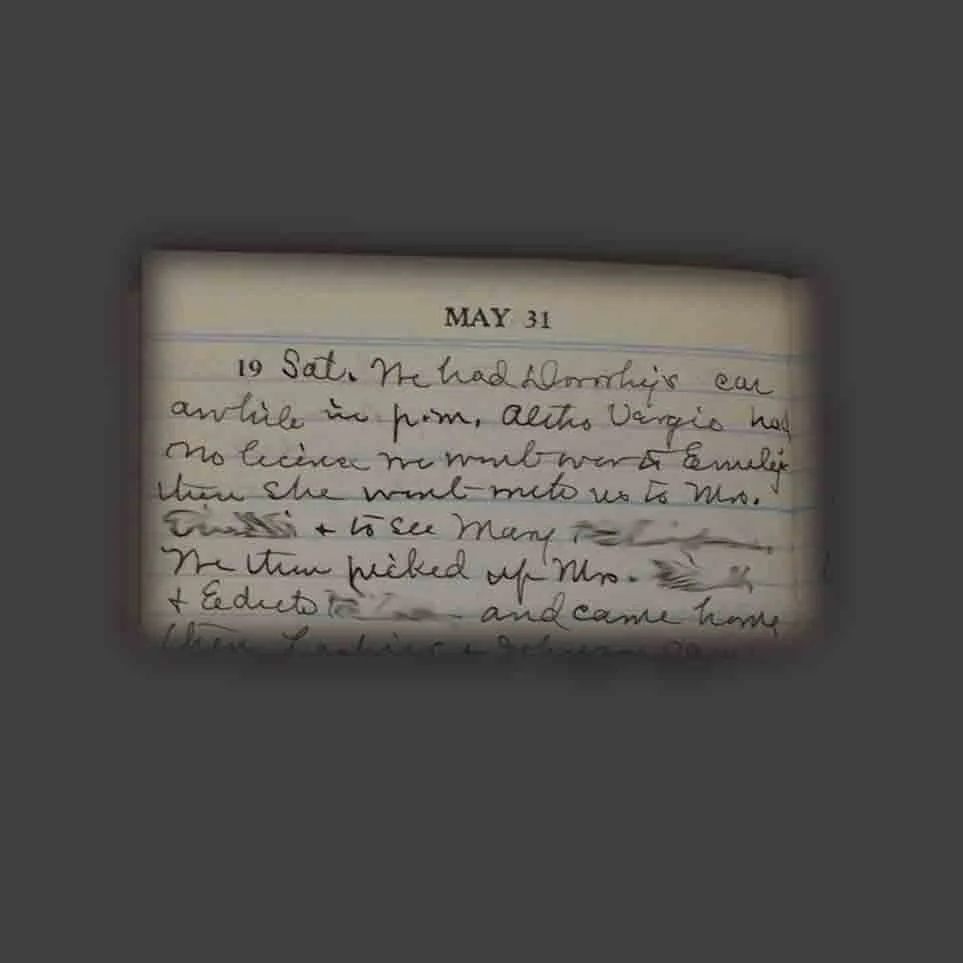 MAY 31
19 Sat. We had Dorothy's car
awhile in p.m. Altho Virgie had
no license we went over to Emelye
then she went with us to Mrs.
+ to see Mary
We then picked up Mrs.
+ and came home
then